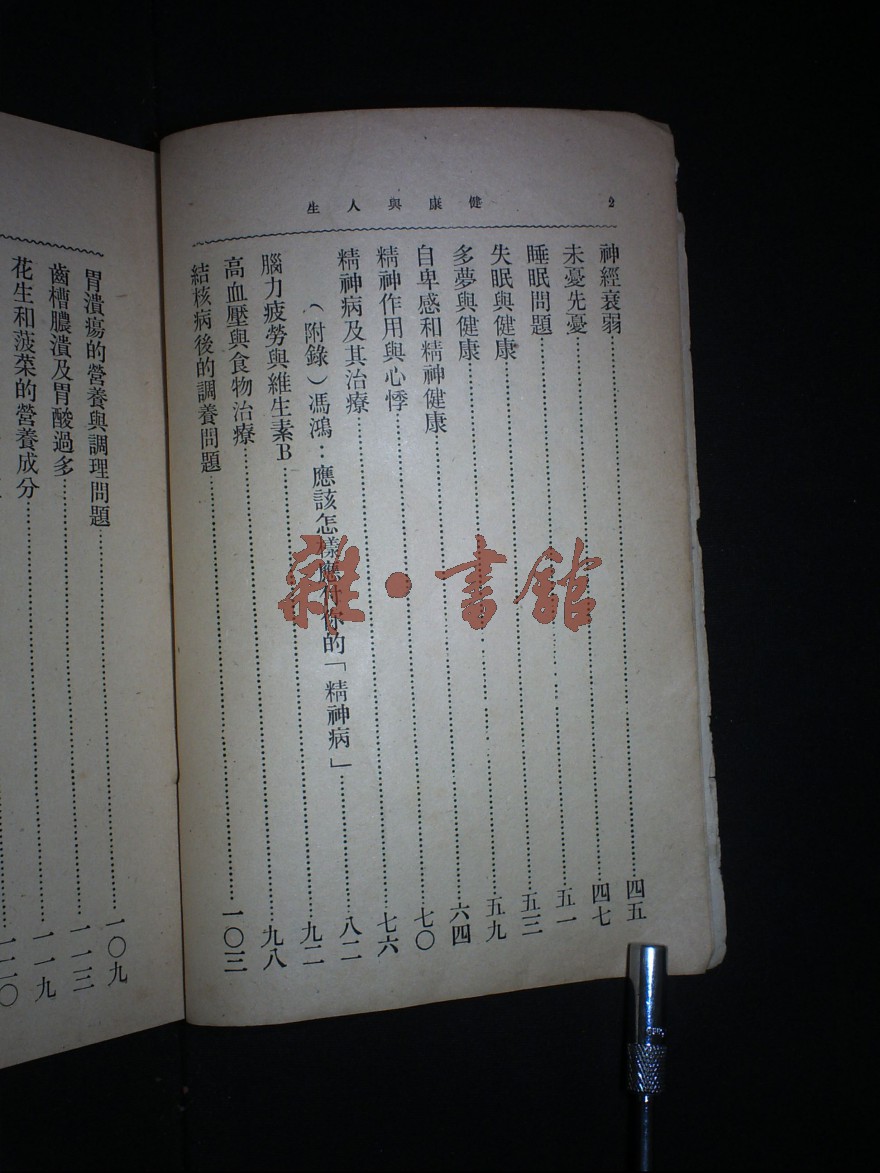 健康與人生
2
神經衰弱……四五
未憂先憂……四七
睡眠問題……五一
失眠與健康……五三
多夢與健康……五九
自卑感和精神健康……六四
精神作用與心悸……七〇
精神病及其治療……七六
(附錄)馮鴻:應該怎樣應付你的「精神病」……八二
腦力疲勞與維生素B……九二
高血壓與食物治療……九八
結核病後的調養問題……一〇三
胃潰瘍的營養與調理問題……一〇九
齒槽膿潰及胃酸過多……一一三
花生和菠菜的營養成分……一一九
一二〇
雜·書館